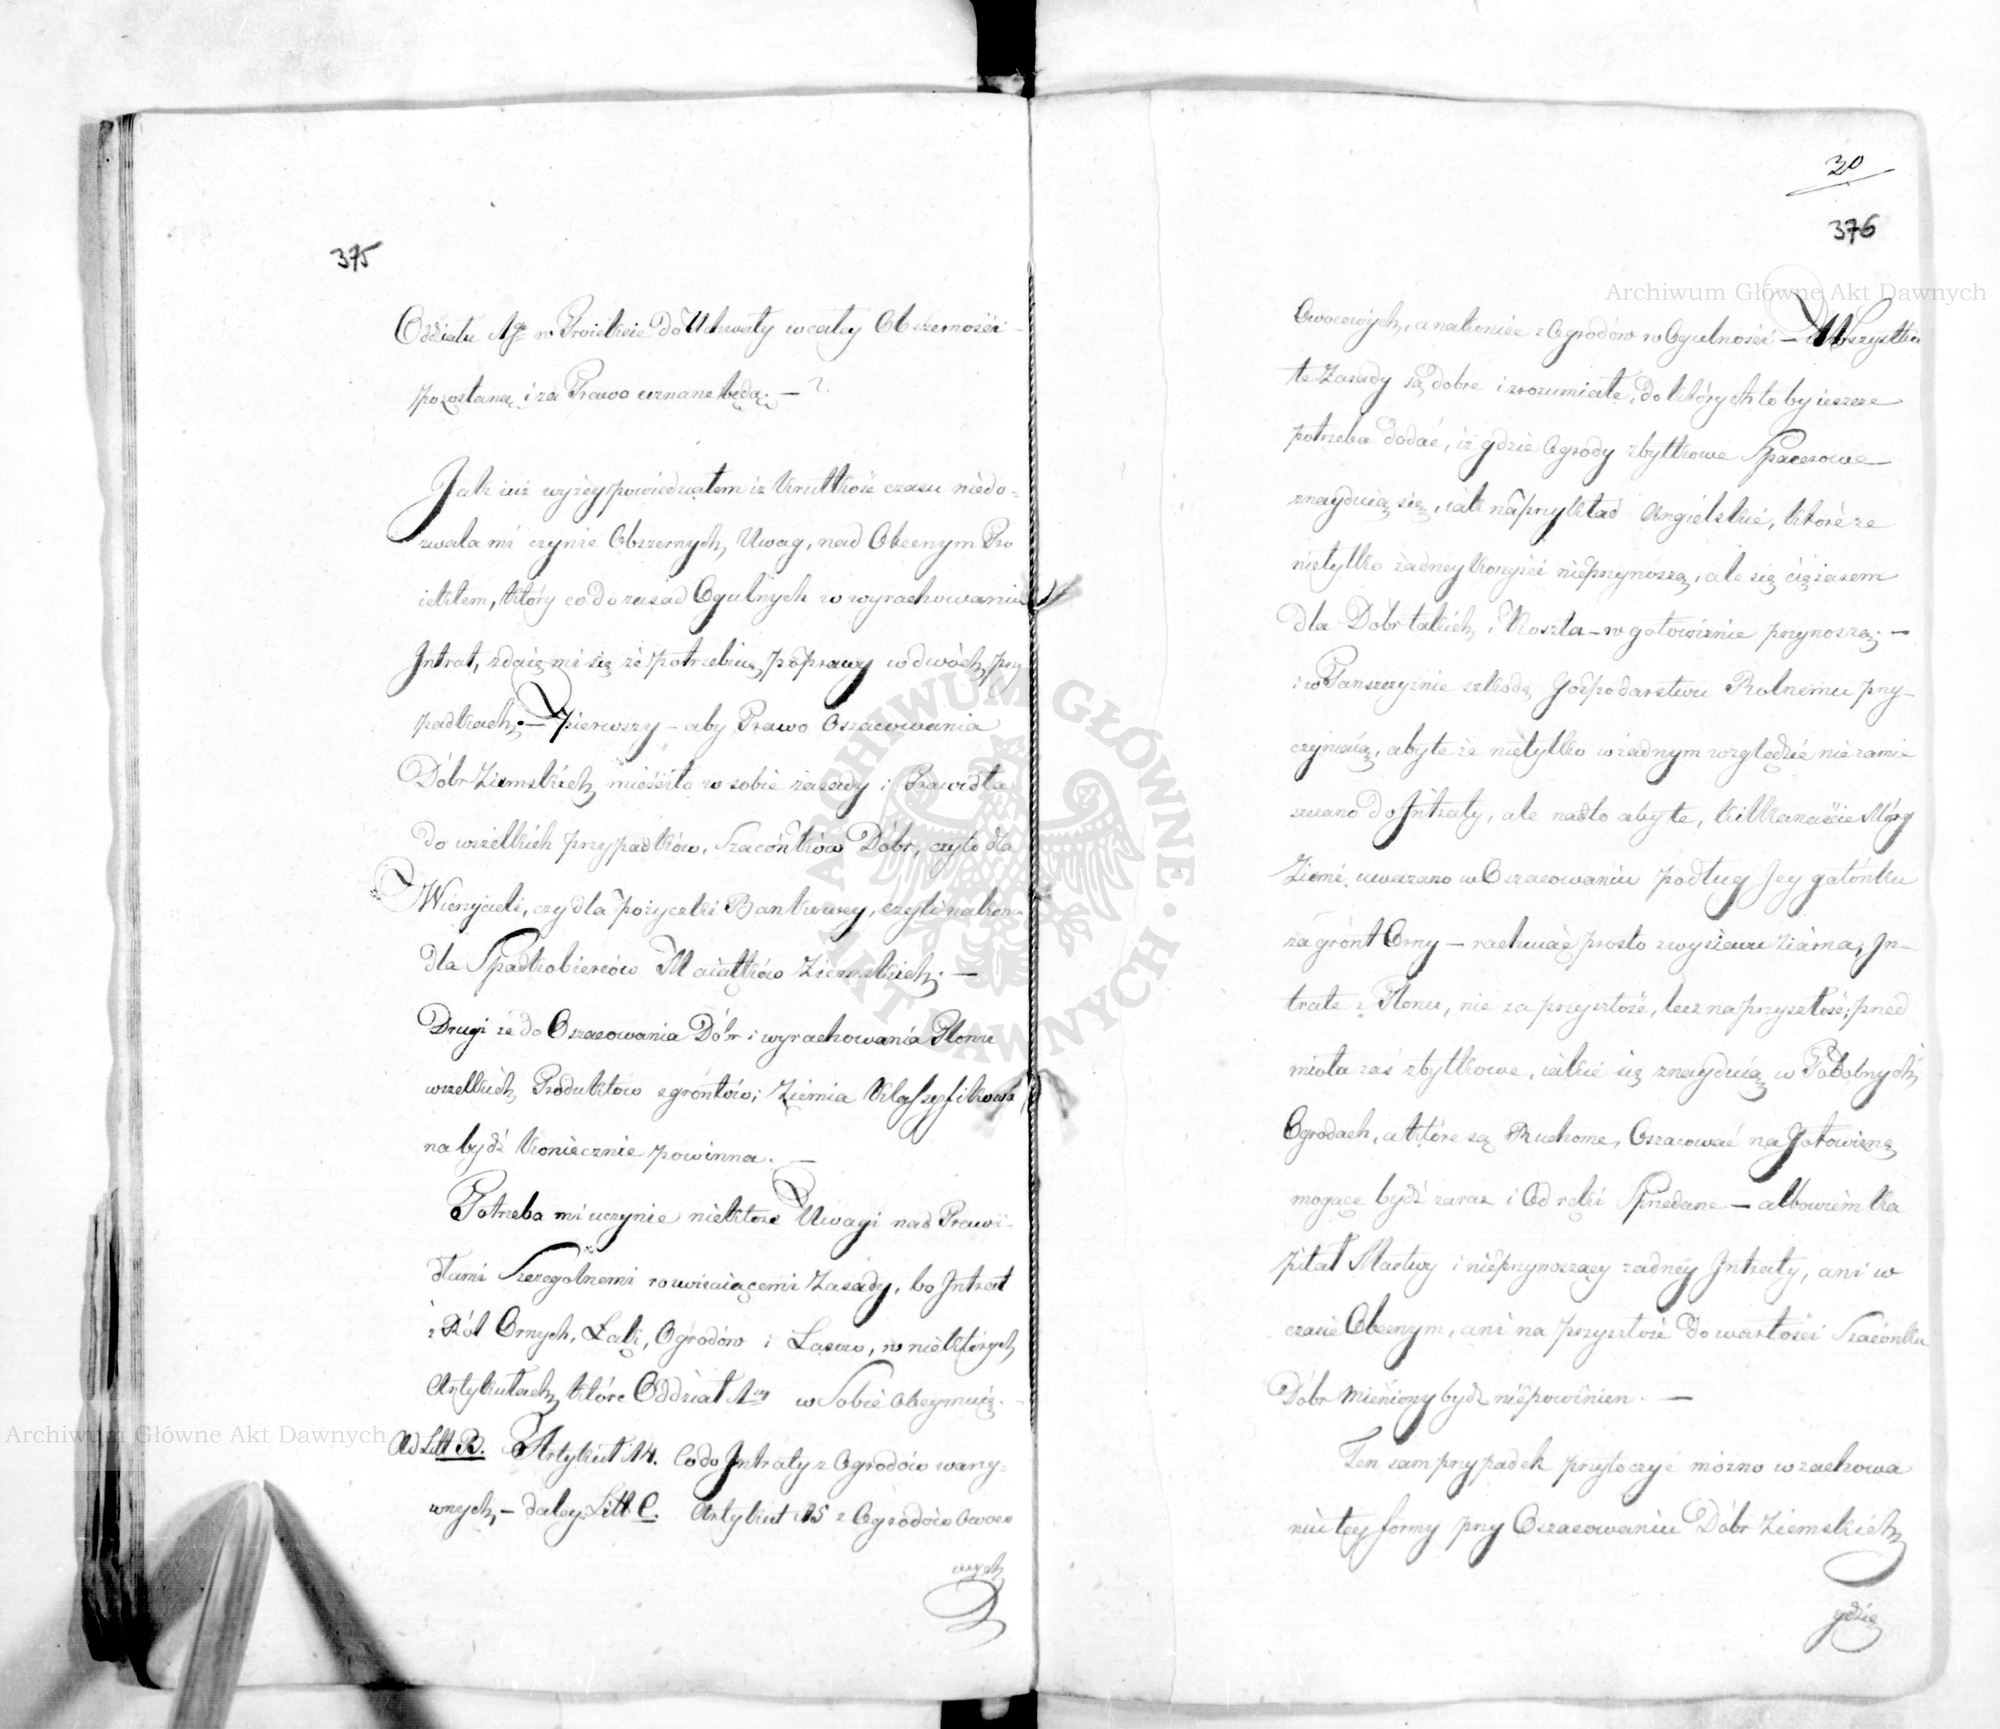 375
Oddziału 1go w Proiekcie do Uchwały w całey Obszerności
pozostaną i za Prawo uznane będą. — ?
Jak iuż wyżey powiedziałem iż krutkość czasu niedo-
zwala mi czynić Obszernych Uwag, nad Obecnym Pro
iektem, który co do zasad Ogulnych w wyrachowaniu
Intrat, zdaię mi się że potrzebuią poprawy w dwóch przy
padkach. — Pierwszy — aby Prawo Oszacowania
Dóbr Ziemskich mieściło w sobie zasady i Prawidła
do wszelkich przypadków, Szacónków Dóbr, czyto dla
Wierzycieli, czy dla pożyczki Bankowey, czyli nakon
dla Spadkobierców Maiątków Ziemskich. —
Drugi że do Oszacowania Dóbr i wyrachowania Plonu
wszelkich Produktów z gróntów; Ziemia Klassyfikowa
na bydź koniecznie powinna. —
Potrzeba mi uczynić niektóre Uwagi nad Prawi-
dłami Szczegolnemi rozwiiaiącemi Zasady, bo Intrat
z Ról Ornych, Łąk, Ogrodów i Lasów, w niektórych
Artykułach które Oddział 1szy w Sobie Obeymuią.
Ad Litt B. Artykuł 14. Co do Intraty z Ogrodów warzy-
wnych, — daley Litt C. Artykuł 15 z Ogrodów Owoco
wych
30
376
Owocowych, a nakoniec z Ogrodów w Ogulności — Wszystkie
te Zasady są dobre i zrozumiałe, do których to by ieszcze
potrzeba dodać, iż gdzie Ogrody zbytkowe Spacerowe —
znayduią się, iak naprzykład Angielskie, które że
nietylko żadney korzyści nieprzynoszą, ale się ciężarem
dla Dóbr takich i Koszta — w gotowiźnie przynoszą. —
i w Panszczyznie szkodę Gospodarstwu Rolnemu przy-
czyniaią, aby te że nietylko w żadnym względzie nie zamie
szczano do Intraty, ale nadto aby te, kilkanaście Mórg
Ziemi, uważano w Oszacowaniu podług Jey gatónku
za grónt Orny — rachuiąc prosto z wysiewu ziarna, In-
tratę z Plonu, nie za przyszłość, lecz na przyszłość; przed
miota zaś zbytkowe, iakie się znayduią w Podobnych
Ogrodach, a które są Ruchome, Oszacować na Gotowiznę
mogące bydź zaraz i Od ręki Sprzedane — albowiem Ka
pitał Martwy i nieprzynoszący żadney Intraty, ani w
czasie Obecnym, ani na przyszłość do wartości Szacónku
Dóbr mieniony bydź niepowinien. —
Ten sam przypadek przytoczyć można w zachowa
niu tey formy przy Oszacowaniu Dóbr Ziemskich
gdzie
Archiwum Główne Akt Dawnych
Archiwum Główne Akt Dawnych
ARCHIWUM GŁÓWNE • AKT DAWNYCH •